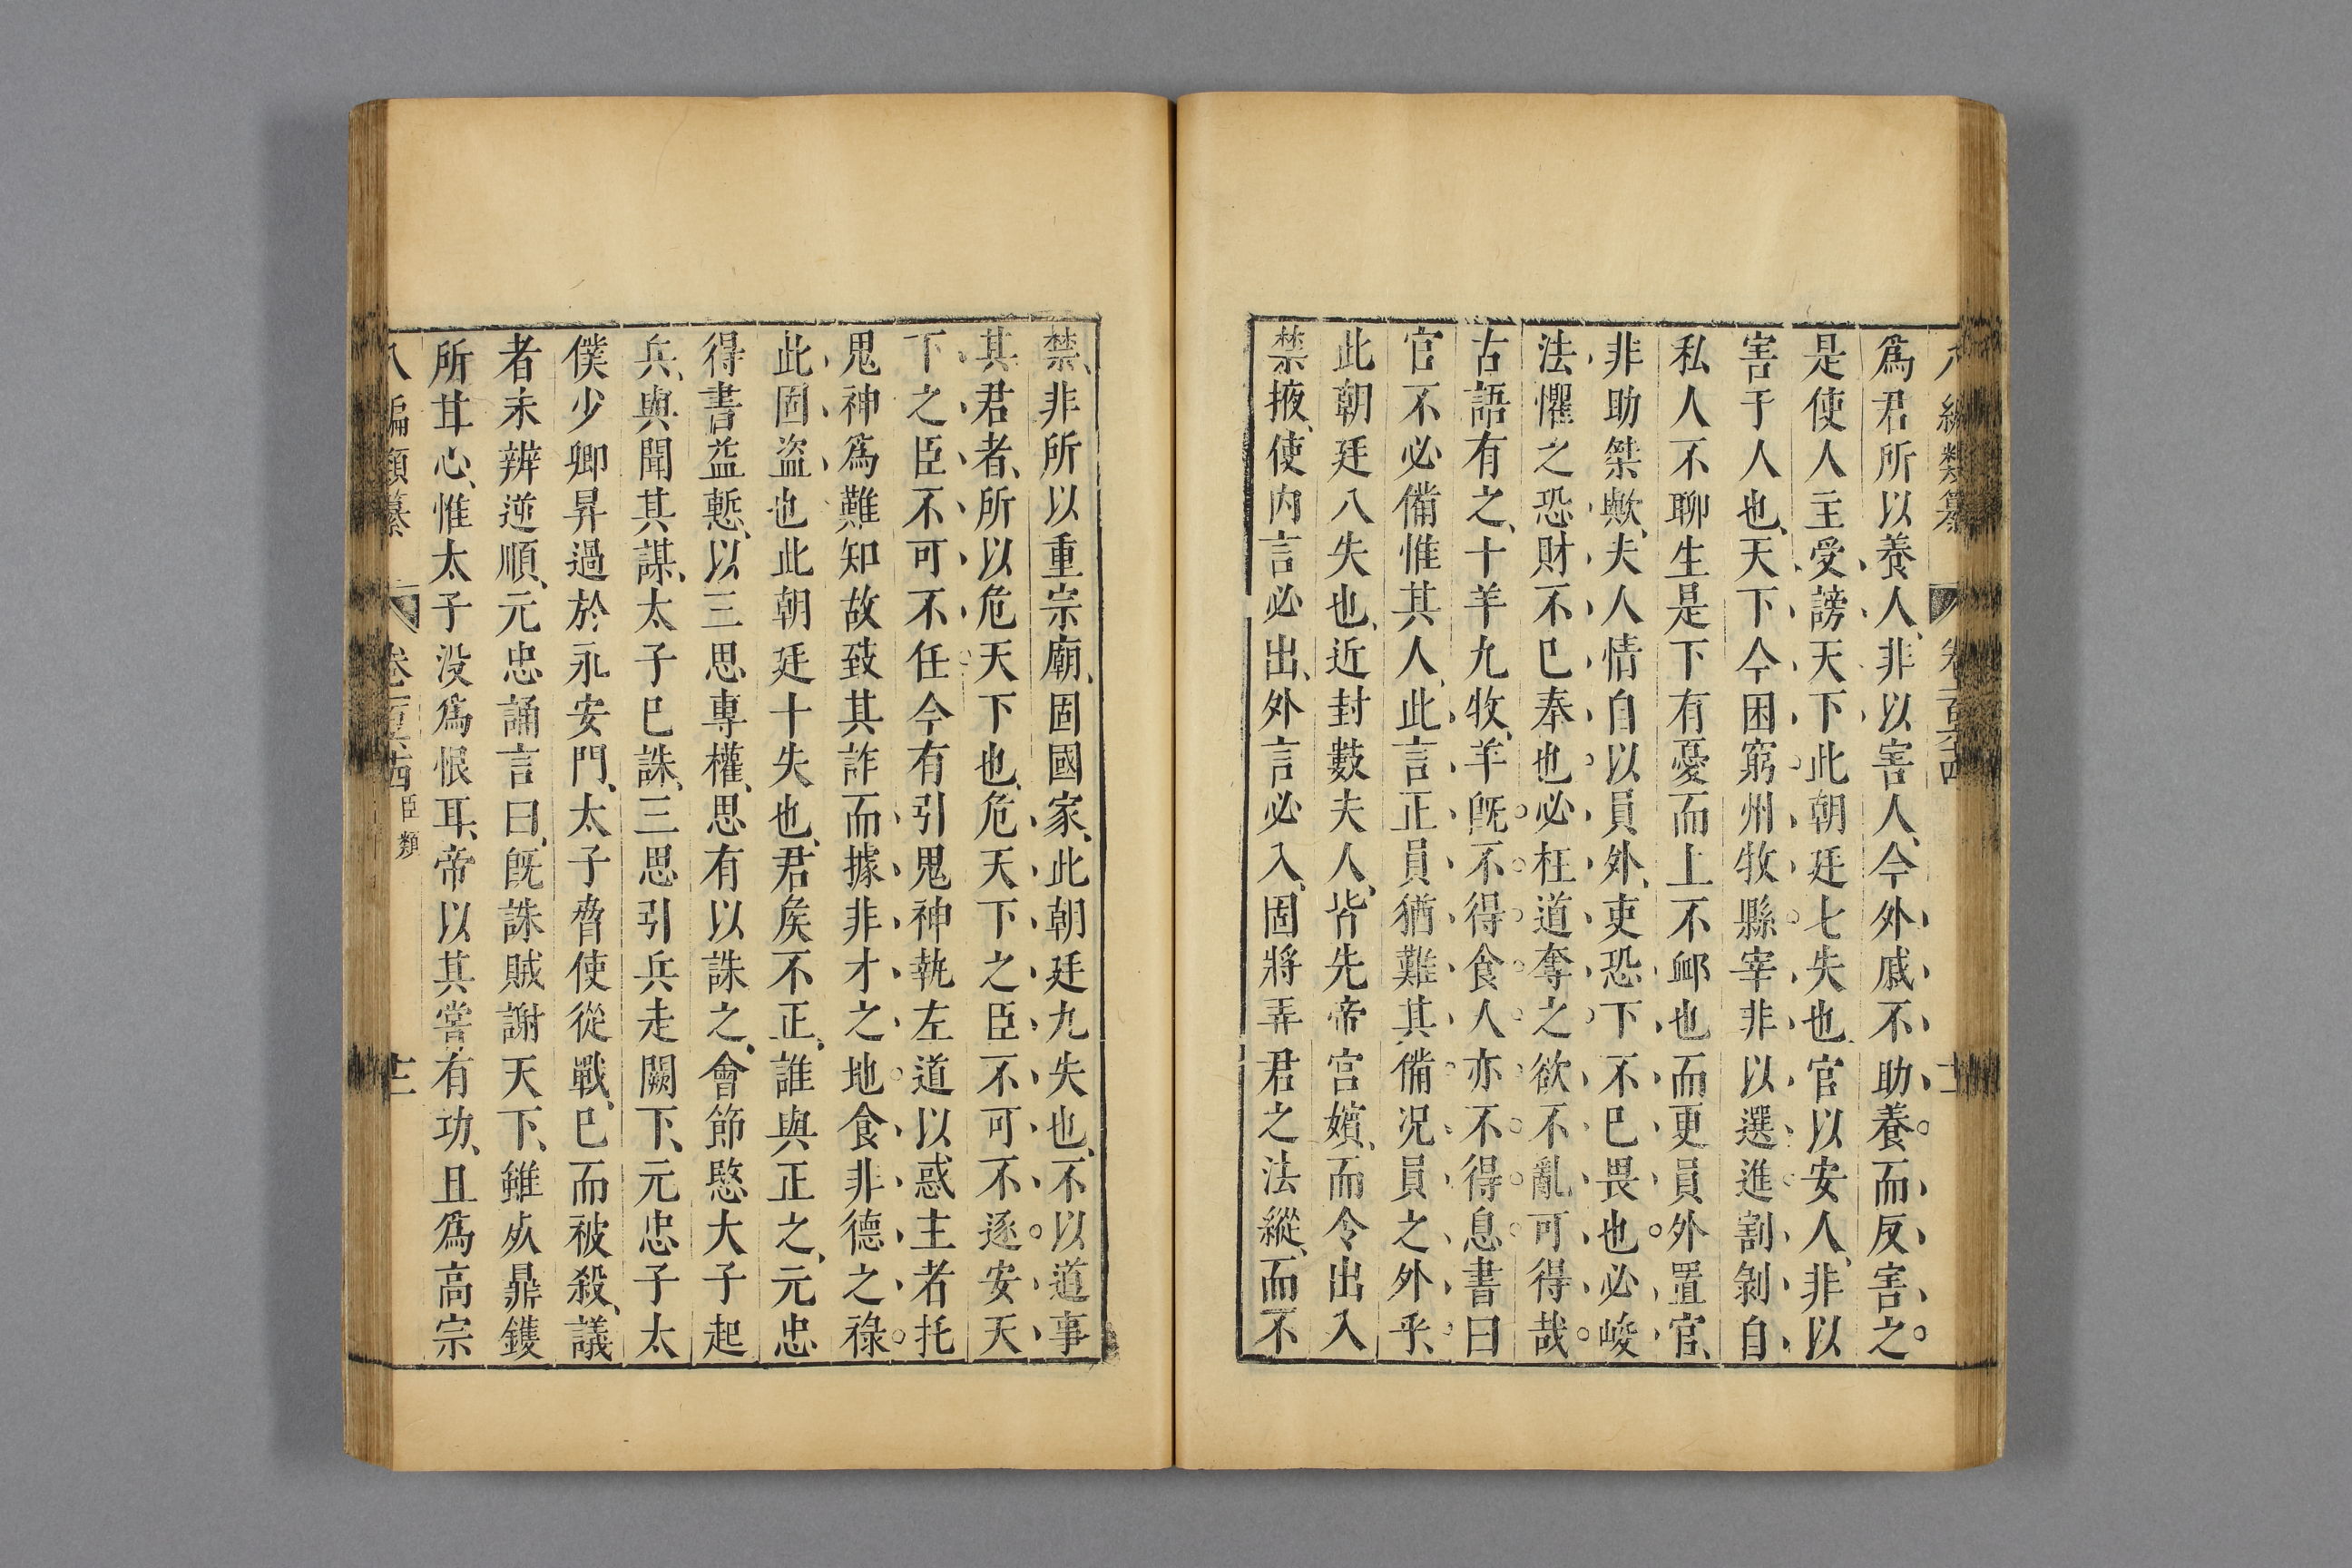 八編類纂 卷一百六十四 十二
爲君所以養人、非以害人、今外戚不助養而反害之
是使人主受謗天下此朝廷七失也、官以安人、非以
害于人也、天下今困窮州牧縣宰非以選進割剝自
私人不聊生是下有憂而上不卹也而更員外置官、
非助桀歟、夫人情自以員外、吏恐下不已畏也必峻
法懼之恐財不已奉也必枉道奪之欲不亂可得哉
古語有之、十羊九牧、羊旣不得食人亦不得息書曰
官不必備惟其人、此言正員猶難其備况員之外乎、
此朝廷八失也、近封數夫人、皆先帝宮嬪、而令出入
禁掖、使內言必出、外言必入、固將弄君之法縱、而不
禁、非所以重宗廟、固國家、此朝廷九失也、不以道事
其君者、所以危天下也、危天下之臣不可不逐安天
下之臣不可不任今有引鬼神執左道以惑主者托
鬼神爲難知故致其詐而據非才之地食非德之祿
此固盗也此朝廷十失也、君矦不正、誰與正之、元忠
得書益慙、以三思專權、思有以誅之、會節愍太子起
兵、與聞其謀、太子已誅、三思引兵走闕下、元忠子太
僕少卿昇過於永安門、太子脅使從戰、已而被殺、議
者未辨逆順、元忠誦言曰、旣誅賊謝天下、雖死鼎鑊
所甘心、惟太子没爲恨耳、帝以其嘗有功、且爲高宗
八編類纂 卷一百六十四 臣類 十三